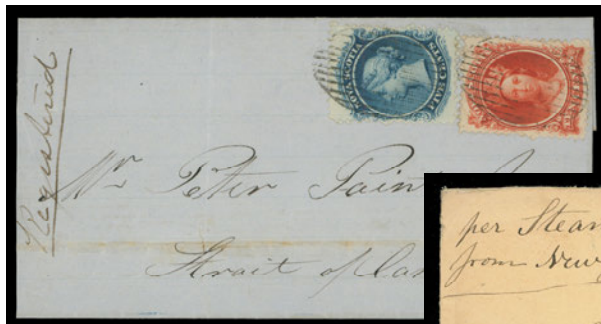 Registered
NOVA SCOTIA
Mr Peter Paint
Strait of Can
per Steam
from New